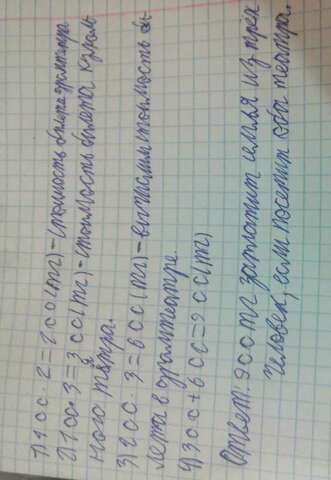 1) 100 · 2 = 200 (тг) - стоимость билета драмтеатра
2) 100 · 3 = 300 (тг) - стоимость билета куколь
ного театра.
3) 200 · 3 = 600 (тг) - вычислим стоимость би-
лета в драмтеатре.
4) 300 + 600 = 900 (тг)
Ответ: 900 тг заплатит семья из трёх
человек, если посетит оба театра.